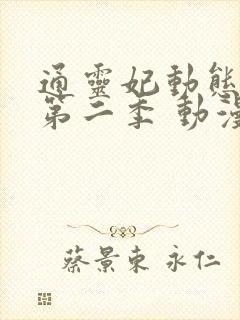 通靈妃動態
第二季 動漫
蔡景東 永仁